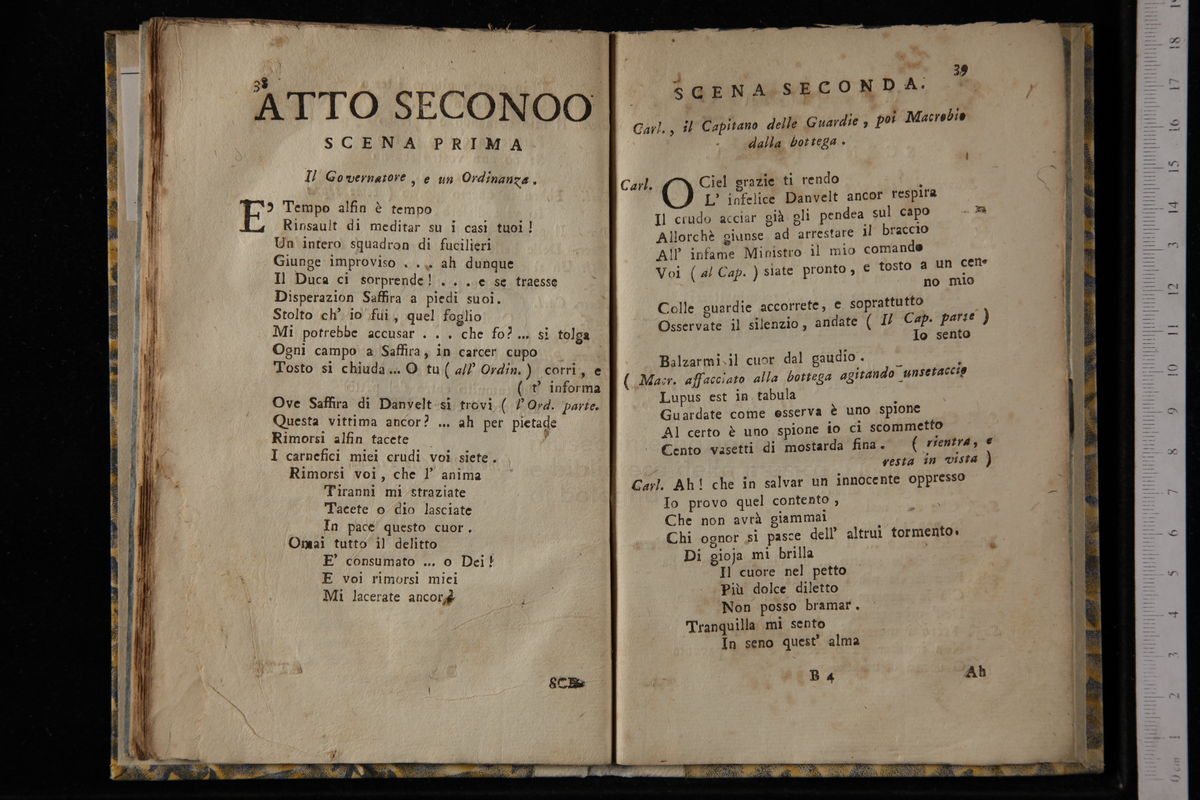 38
ATTO SECONOO
SCENA PRIMA
Il Governatore, e un Ordinanza.
E' Tempo alfin è tempo
Rinsault di meditar su i casi tuoi!
Un intero squadron di fucilieri
Giunge improviso . . . ah dunque
Il Duca ci sorprende! . . . e se traesse
Disperazion Saffira a piedi suoi.
Stolto ch' io fui, quel foglio
Mi potrebbe accusar . . . che fo? ... si tolga
Ogni campo a Saffira, in carcer cupo
Tosto si chiuda ... O tu ( all' Ordin. ) corri, e
( t' informa
Ove Saffira di Danvelt si trovi ( l' Ord. parte.
Questa vittima ancor? ... ah per pietade
Rimorsi alfin tacete
I carnefici miei crudi voi siete.
Rimorsi voi, che l' anima
Tiranni mi straziate
Tacete o dio lasciate
In pace questo cuor.
Omai tutto il delitto
E' consumato ... o Dei!
E voi rimorsi miei
Mi lacerate ancor?
SCE-
39
SCENA SECONDA.
Carl., il Capitano delle Guardie, poi Macrobio
dalla bottega.
Carl. O Ciel grazie ti rendo
L' infelice Danvelt ancor respira
Il crudo acciar già gli pendea sul capo
Allorchè giunse ad arrestare il braccio
All' infame Ministro il mio comando
Voi ( al Cap. ) siate pronto, e tosto a un cen-
no mio
Colle guardie accorrete, e soprattutto
Osservate il silenzio, andate ( Il Cap. parte )
Io sento
Balzarmi il cuor dal gaudio.
( Macr. affacciato alla bottega agitando unsetaccio
Lupus est in tabula
Guardate come osserva è uno spione
Al certo è uno spione io ci scommetto
Cento vasetti di mostarda fina. ( rientra, e
resta in vista )
Carl. Ah! che in salvar un innocente oppresso
Io provo quel contento,
Che non avrà giammai
Chi ognor si pasce dell' altrui tormento.
Di gioja mi brilla
Il cuore nel petto
Più dolce diletto
Non posso bramar.
Tranquilla mi sento
In seno quest' alma
B 4
Ah
0 cm 1 2 3 4 5 6 7 8 9 10 11 12 13 14 15 16 17 18 19